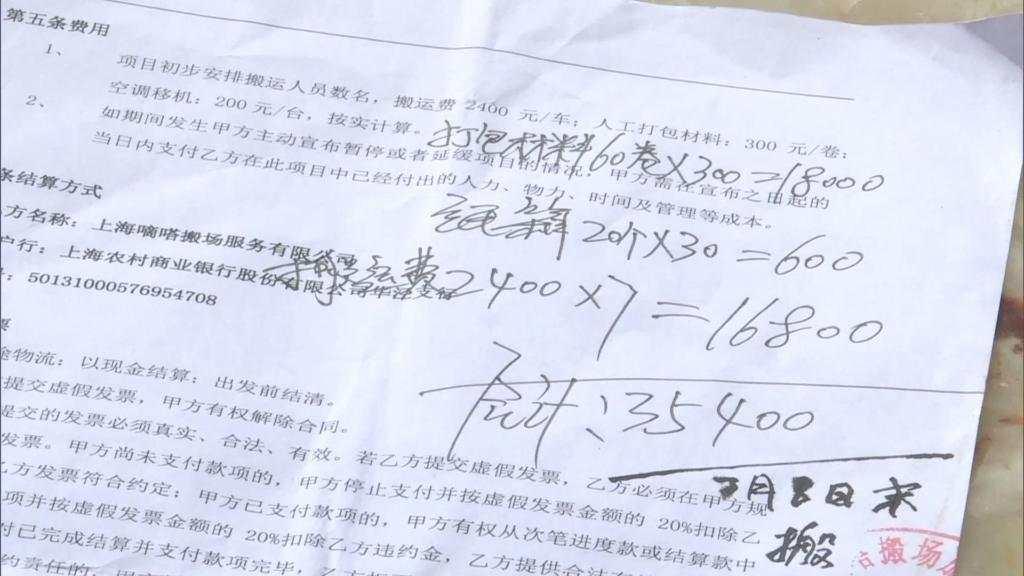 第五条费用
1、 项目初步安排搬运人员数名，搬运费 2400 元/车；人工打包材料：300 元/卷；
空调移机：200 元/台，按实计算。
打包材料60卷×300=18000
2、 如期间发生甲方主动宣布暂停或者延缓项目的情况，甲方需在宣布之日起的
当日内支付乙方在此项目中已经付出的人力、物力、时间及管理等成本。
20个×30=600
条结算方式
方名称：上海嘀嗒搬场服务有限公司
户行：上海农村商业银行股份有限公司华泾支行
搬运费2400×7=16800
：50131000576954708
票
途物流：以现金结算：出发前结清。
合计：35400
提交虚假发票，甲方有权解除合同。
提交的发票必须真实、合法、有效。若乙方提交虚假发票，乙方必须在甲方规
发票。甲方尚未支付款项的，甲方停止支付并按虚假发票金额的 20%扣除乙
乙方发票符合约定；甲方已支付款项的，甲方有权从次笔进度款或结算款中
项并按虚假发票金额的 20%扣除乙方违约金，乙方提供合法有
付已完成结算并支付款项完毕，乙方
约责任的，甲方
月8日来
搬
搬场